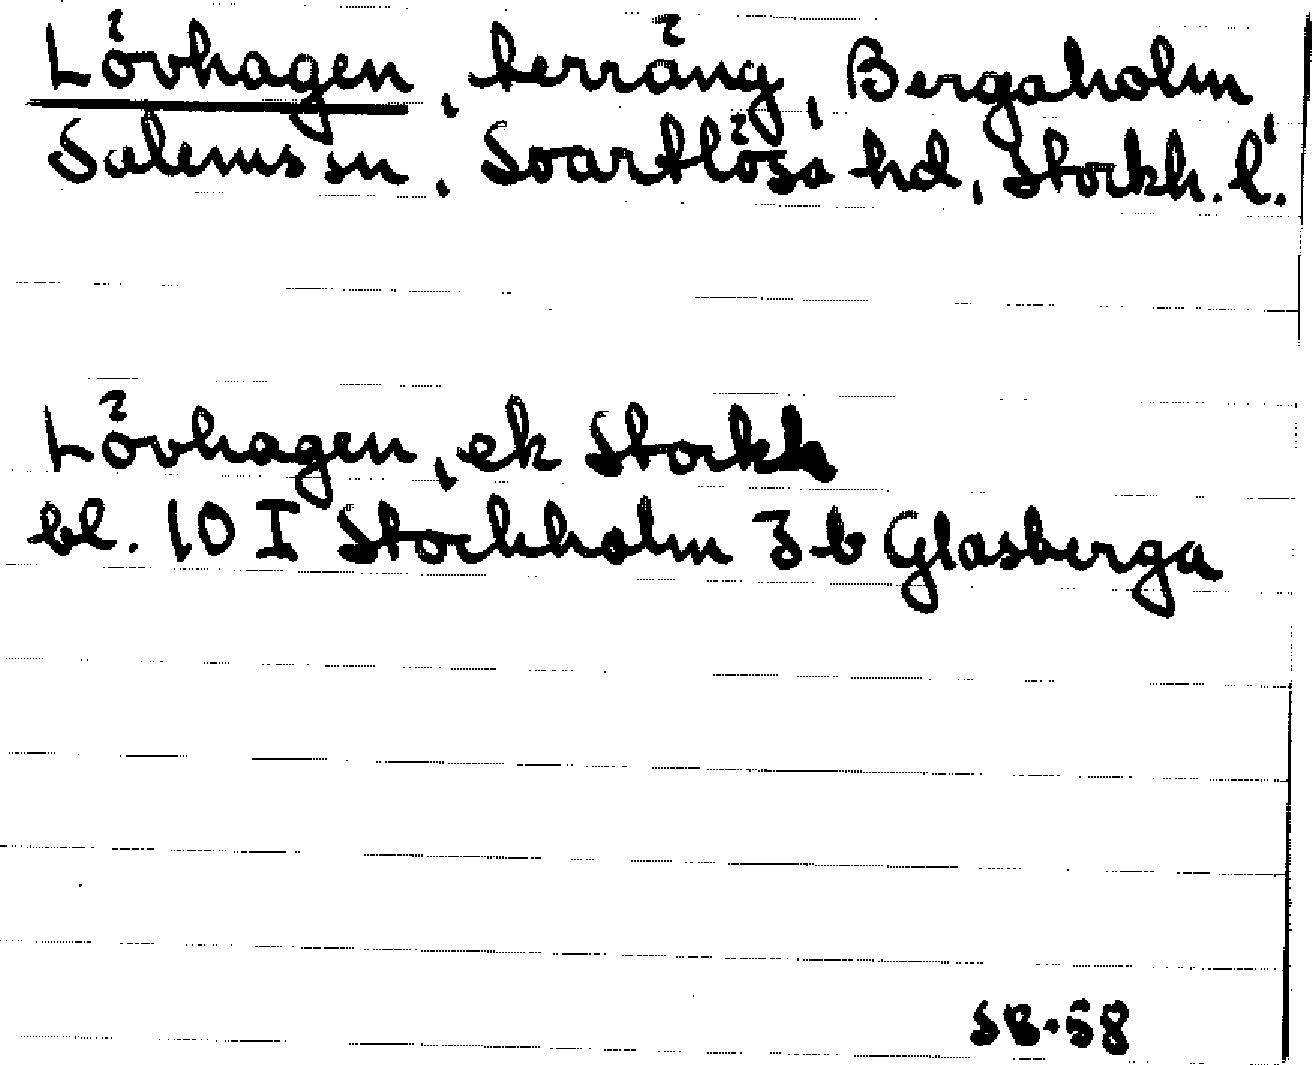 Lövhagen, terräng, Bergaholm
Salems sn, Svartlösa hd, Stockh. l.
Lövhagen, ek Stockh
bl. 10 I Stockholm 3 b Glasberga
SB-58